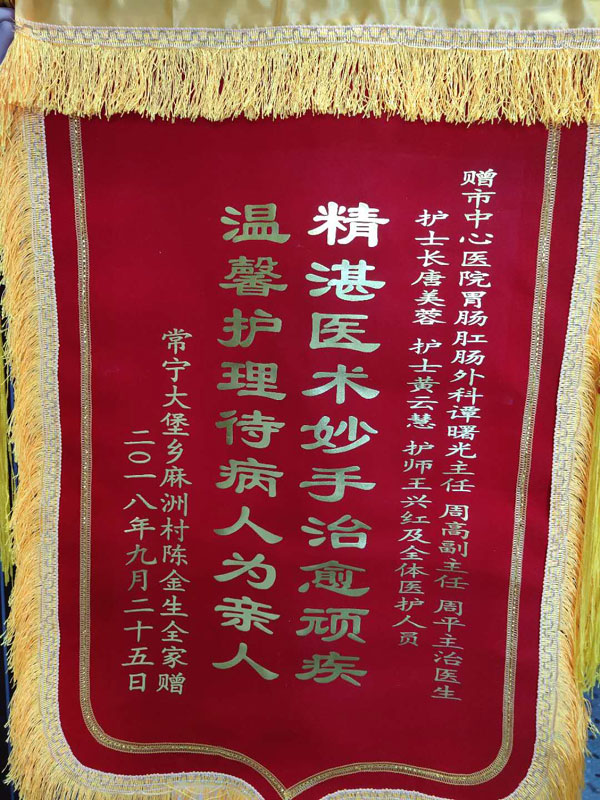 赠市中心医院胃肠肛肠外科谭曙光主任 周高副主任 周平主治医生
护士长唐美蓉 护士黄云慧 护师王兴红及全体医护人员
精湛医术妙手治愈顽疾
温馨护理待病人为亲人
常宁大堡乡麻洲村陈金生全家赠
二〇一八年九月二十五日